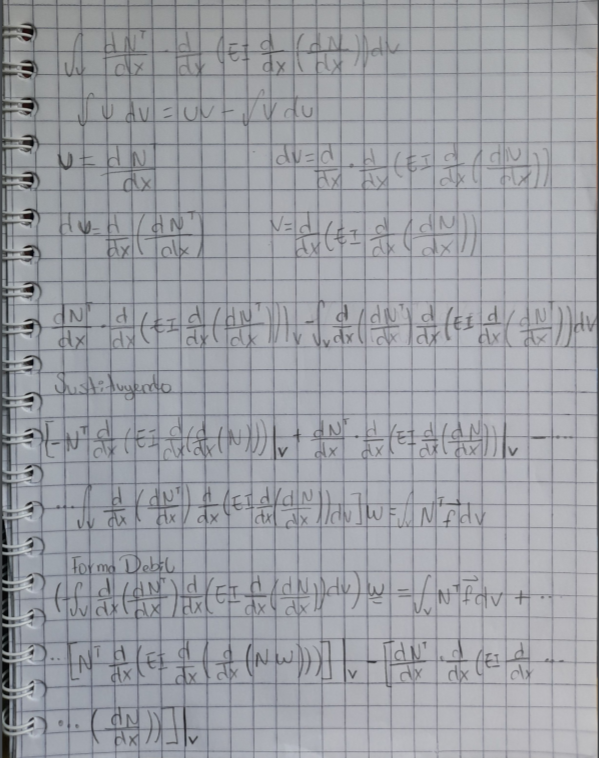 ∫∫ dN^T/dx · d/dx (EI d/dx (dN/dx)) dv
∫ U dV = UV - ∫ V dU
U = dN^T/dx    dv = d/dx · d/dx (EI d/dx (dN/dx))
dU = d/dx (dN^T/dx)    V = d/dx (EI d/dx (dN/dx))
dN^T/dx · d/dx (EI d/dx (dN^T/dx))|_V - ∫_V d/dx (dN^T/dx) d/dx (EI d/dx (dN^T/dx)) dv
Sustituyendo
[-N^T d/dx (EI d/dx (d/dx (N)))|_V + dN^T/dx · d/dx (EI d/dx (dN/dx))|_V - ...
... ∫_V d/dx (dN^T/dx) d/dx (EI d/dx (dN/dx)) dv] W = ∫ N^T f dv
Forma Debil
(-∫_V d/dx (dN^T/dx) d/dx (EI d/dx (dN/dx)) dv) W = ∫_V N^T f dv + ...
... [N^T d/dx (EI d/dx (d/dx (NW)))]|_V - [dN^T/dx · d/dx (EI d/dx ...
... (dN/dx))]|_V